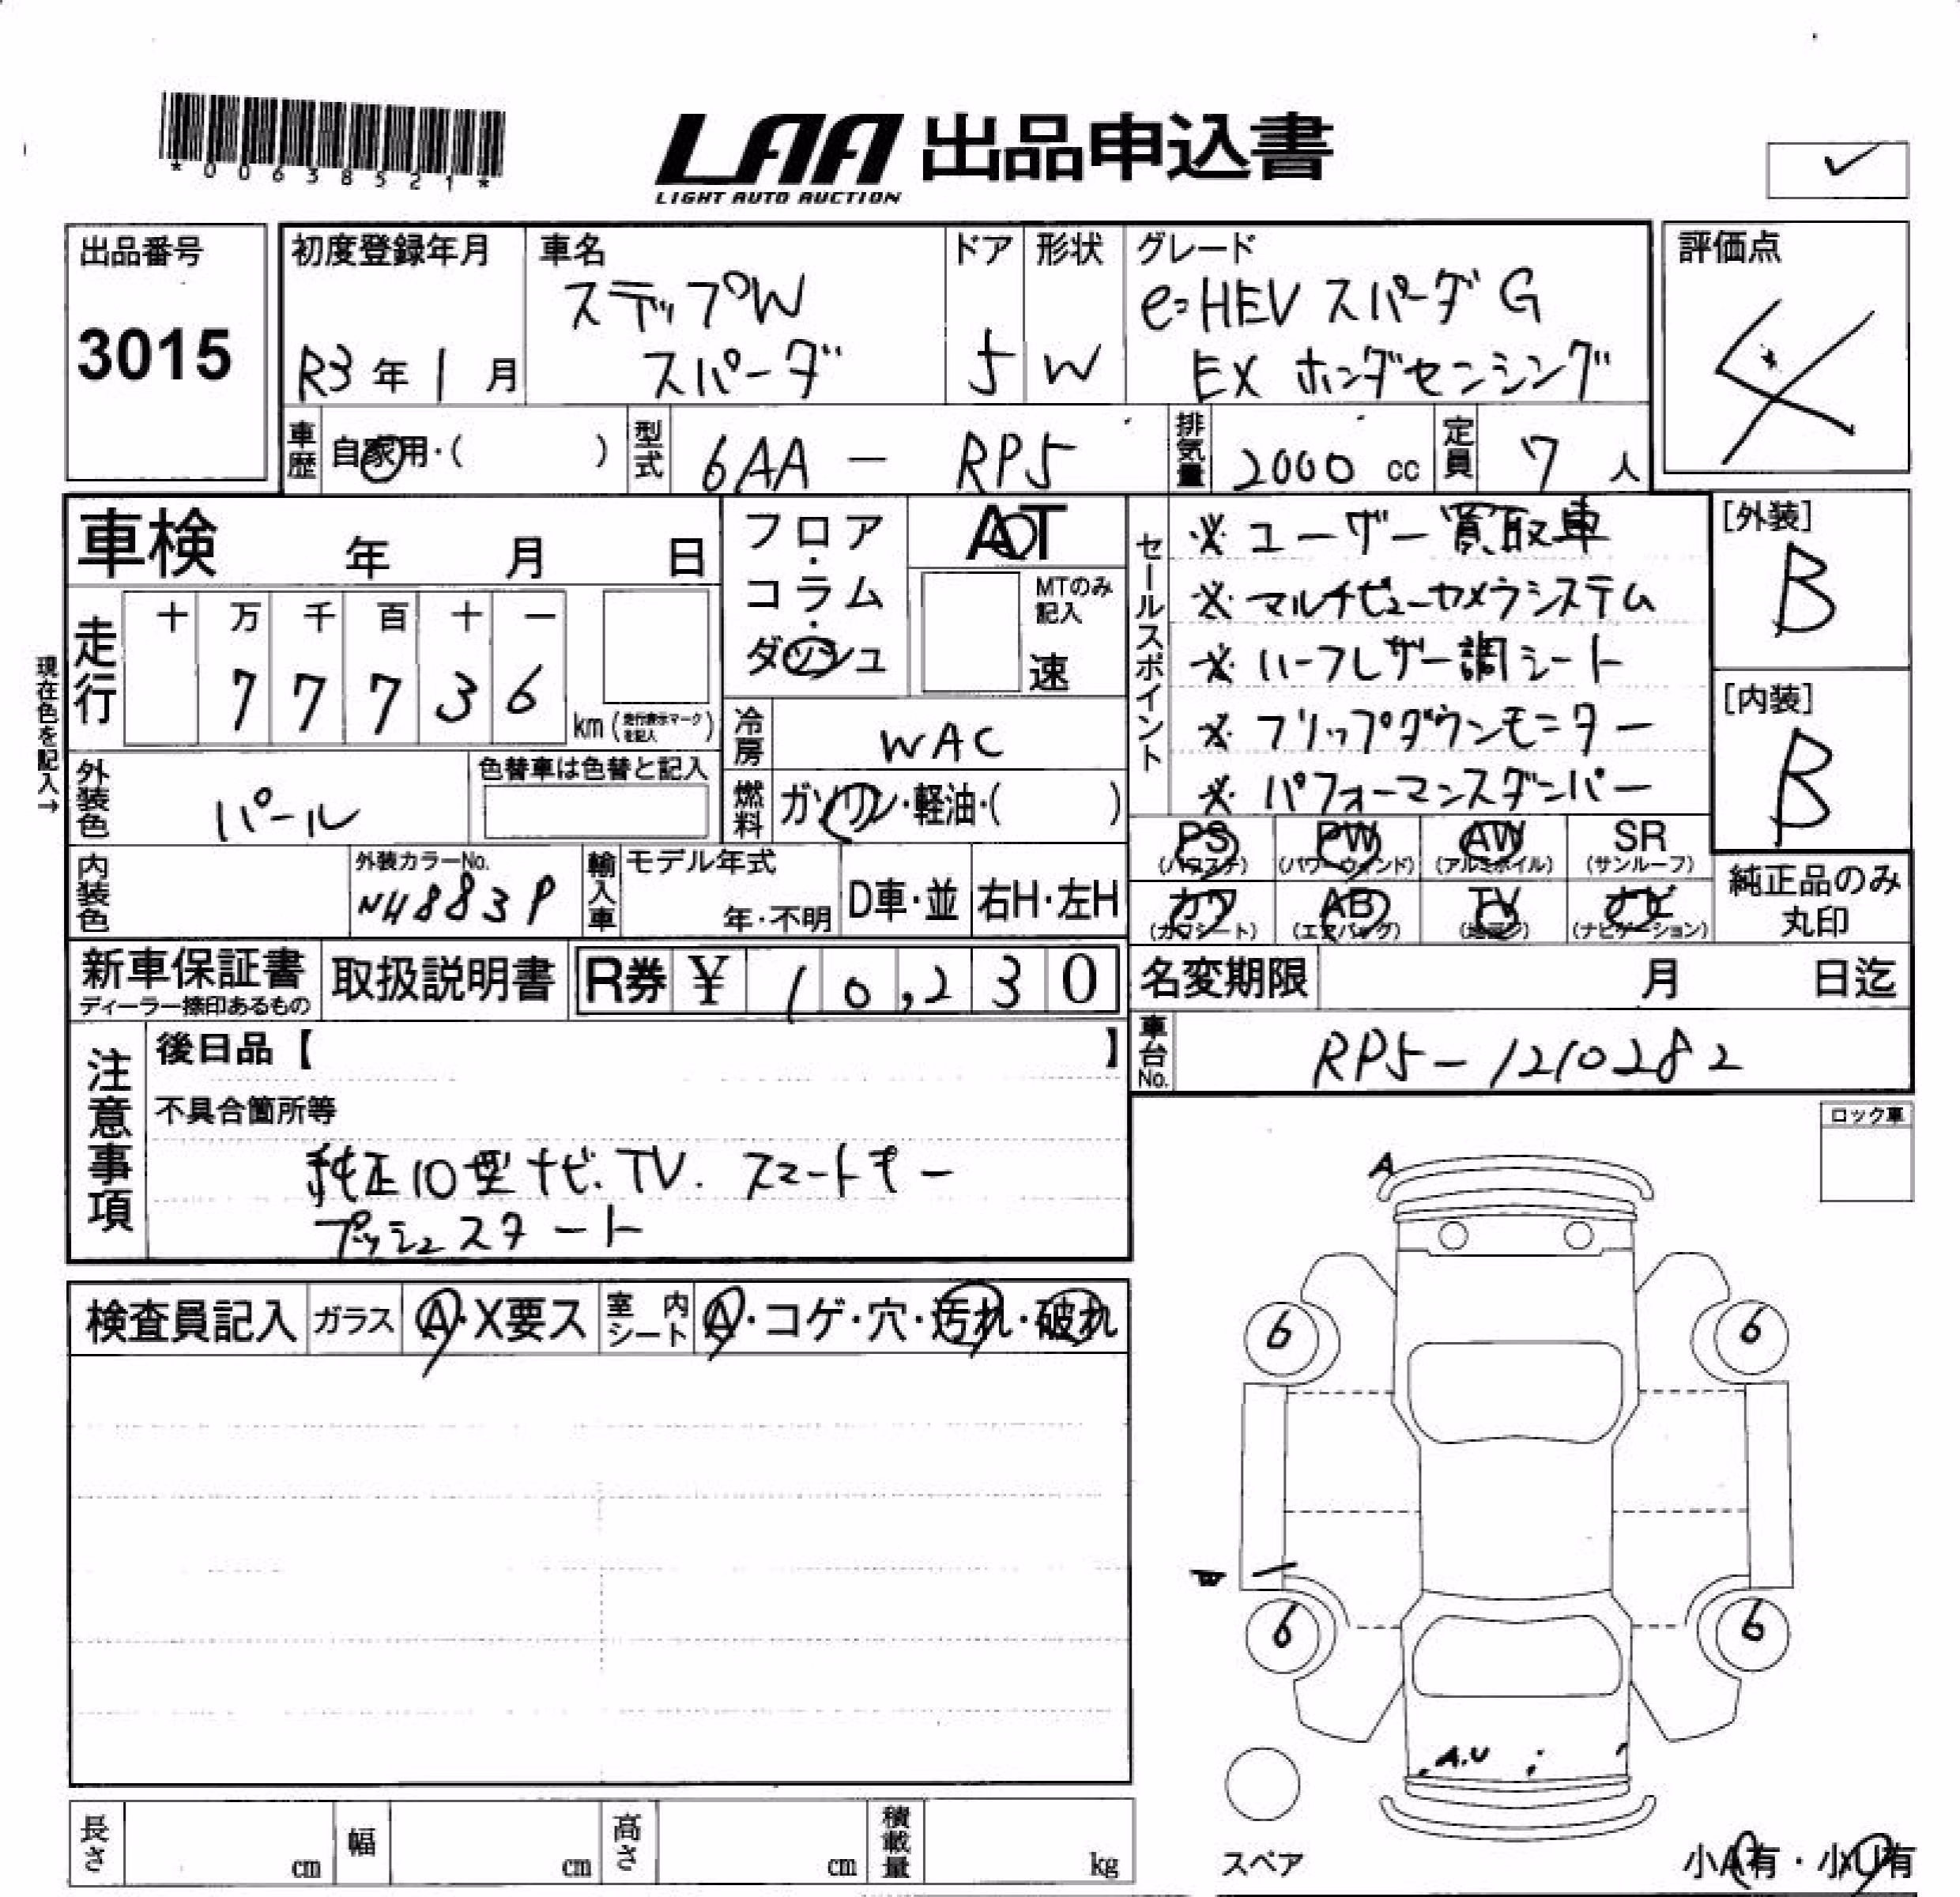 *00638521*
LAA 出品申込書
LIGHT AUTO AUCTION
✓
出品番号
3015
初度登録年月
R3年1月
車名
ステップW
スパーダ
ドア
5
形状
W
グレード
e:HEV スパーダ G
EX ホンダセンシング
評価点
4
車歴
自家用・( )
型式
6AA - RP5
排気量
2000 cc
定員
7人
車検 年 月 日
フロア・コラム・ダッシュ
AT
MTのみ記入
速
セールスポイント
※ ユーザー買取車
※ マルチビューカメラシステム
※ ハーフレザー調シート
※ フリップダウンモニター
※ パフォーマンスダンパー
[外装]
B
[内装]
B
現在色を記入→
走行
十 万 千 百 十 一
7 7 7 3 6
km (走行表示マークを記入)
冷房
WAC
外装色
パール
色替車は色替と記入
燃料
ガソリン・軽油・( )
PS
(パワステ)
PW
(パワーウィンド)
AW
(アルミホイル)
SR
(サンルーフ)
カワ
(カワシート)
AB
(エアバッグ)
TV
ナビ
(ナビゲーション)
純正品のみ
丸印
内装色
外装カラーNo.
NH883P
輸入車
モデル年式
年・不明
D車・並
右H・左H
新車保証書
ディーラー捺印あるもの
取扱説明書
R券 ¥ 10,230
名変期限 月 日迄
車台No.
RP5-1210282
注意事項
後日品【 】
不具合箇所等
純正10型ナビ. TV. スマートキー
プッシュスタート
ロック車
検査員記入
ガラス
A・X要ス
室内シート
A・コゲ・穴・汚れ・破れ
A
6
6
W
6
6
A.U
スペア
小A有・小U有
長さ
cm
幅
cm
高さ
cm
積載量
kg